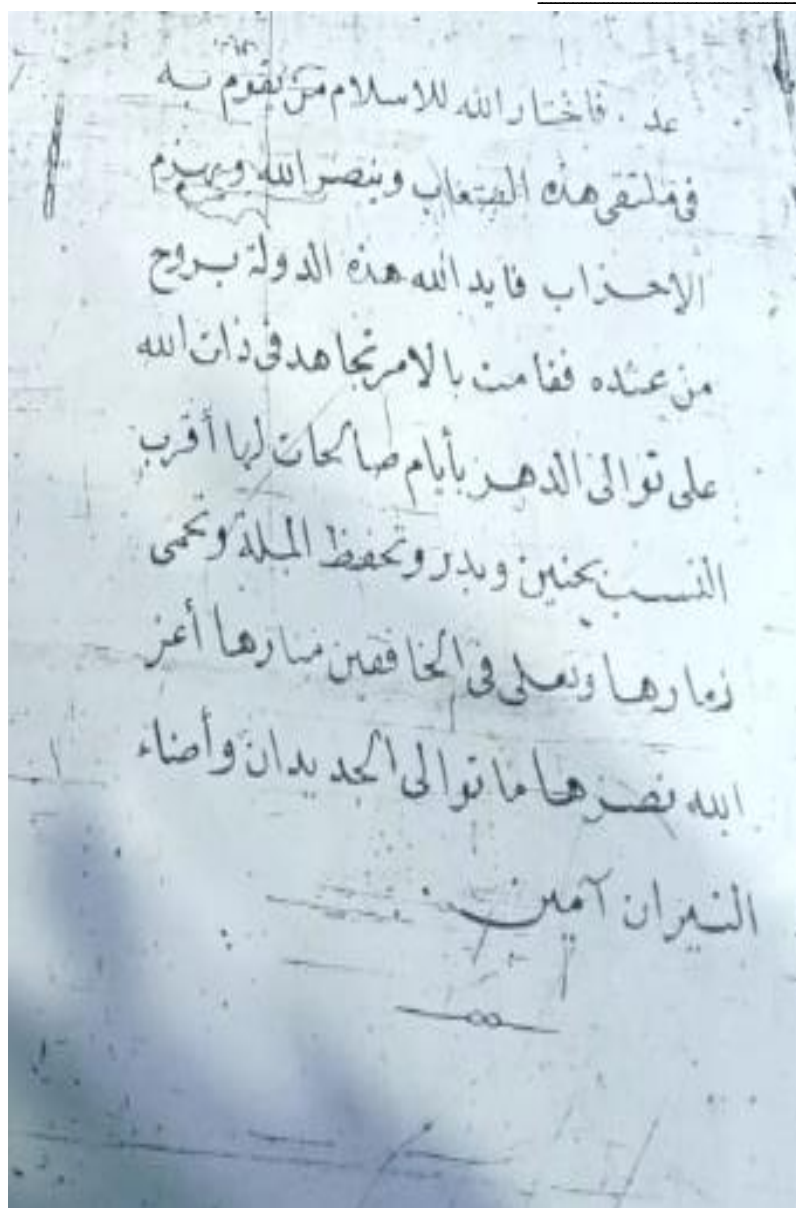 عد . فاختار الله للاسلام من يقوم به
فى ملتقى هذه الصعاب وينصر الله ويهزم
الاحزاب فايد الله هذه الدولة بروح
من عنده فقامت بالامر تجاهد فى ذات الله
على توالى الدهر بأيام صالحات لها أقرب
النسب بحنين وبدر وتحفظ الملة وتحمى
زمارها وتعلى فى الخافقين منارها أعز
الله نصرها ما توالى الجديدان وأضاء
النيران آمين .